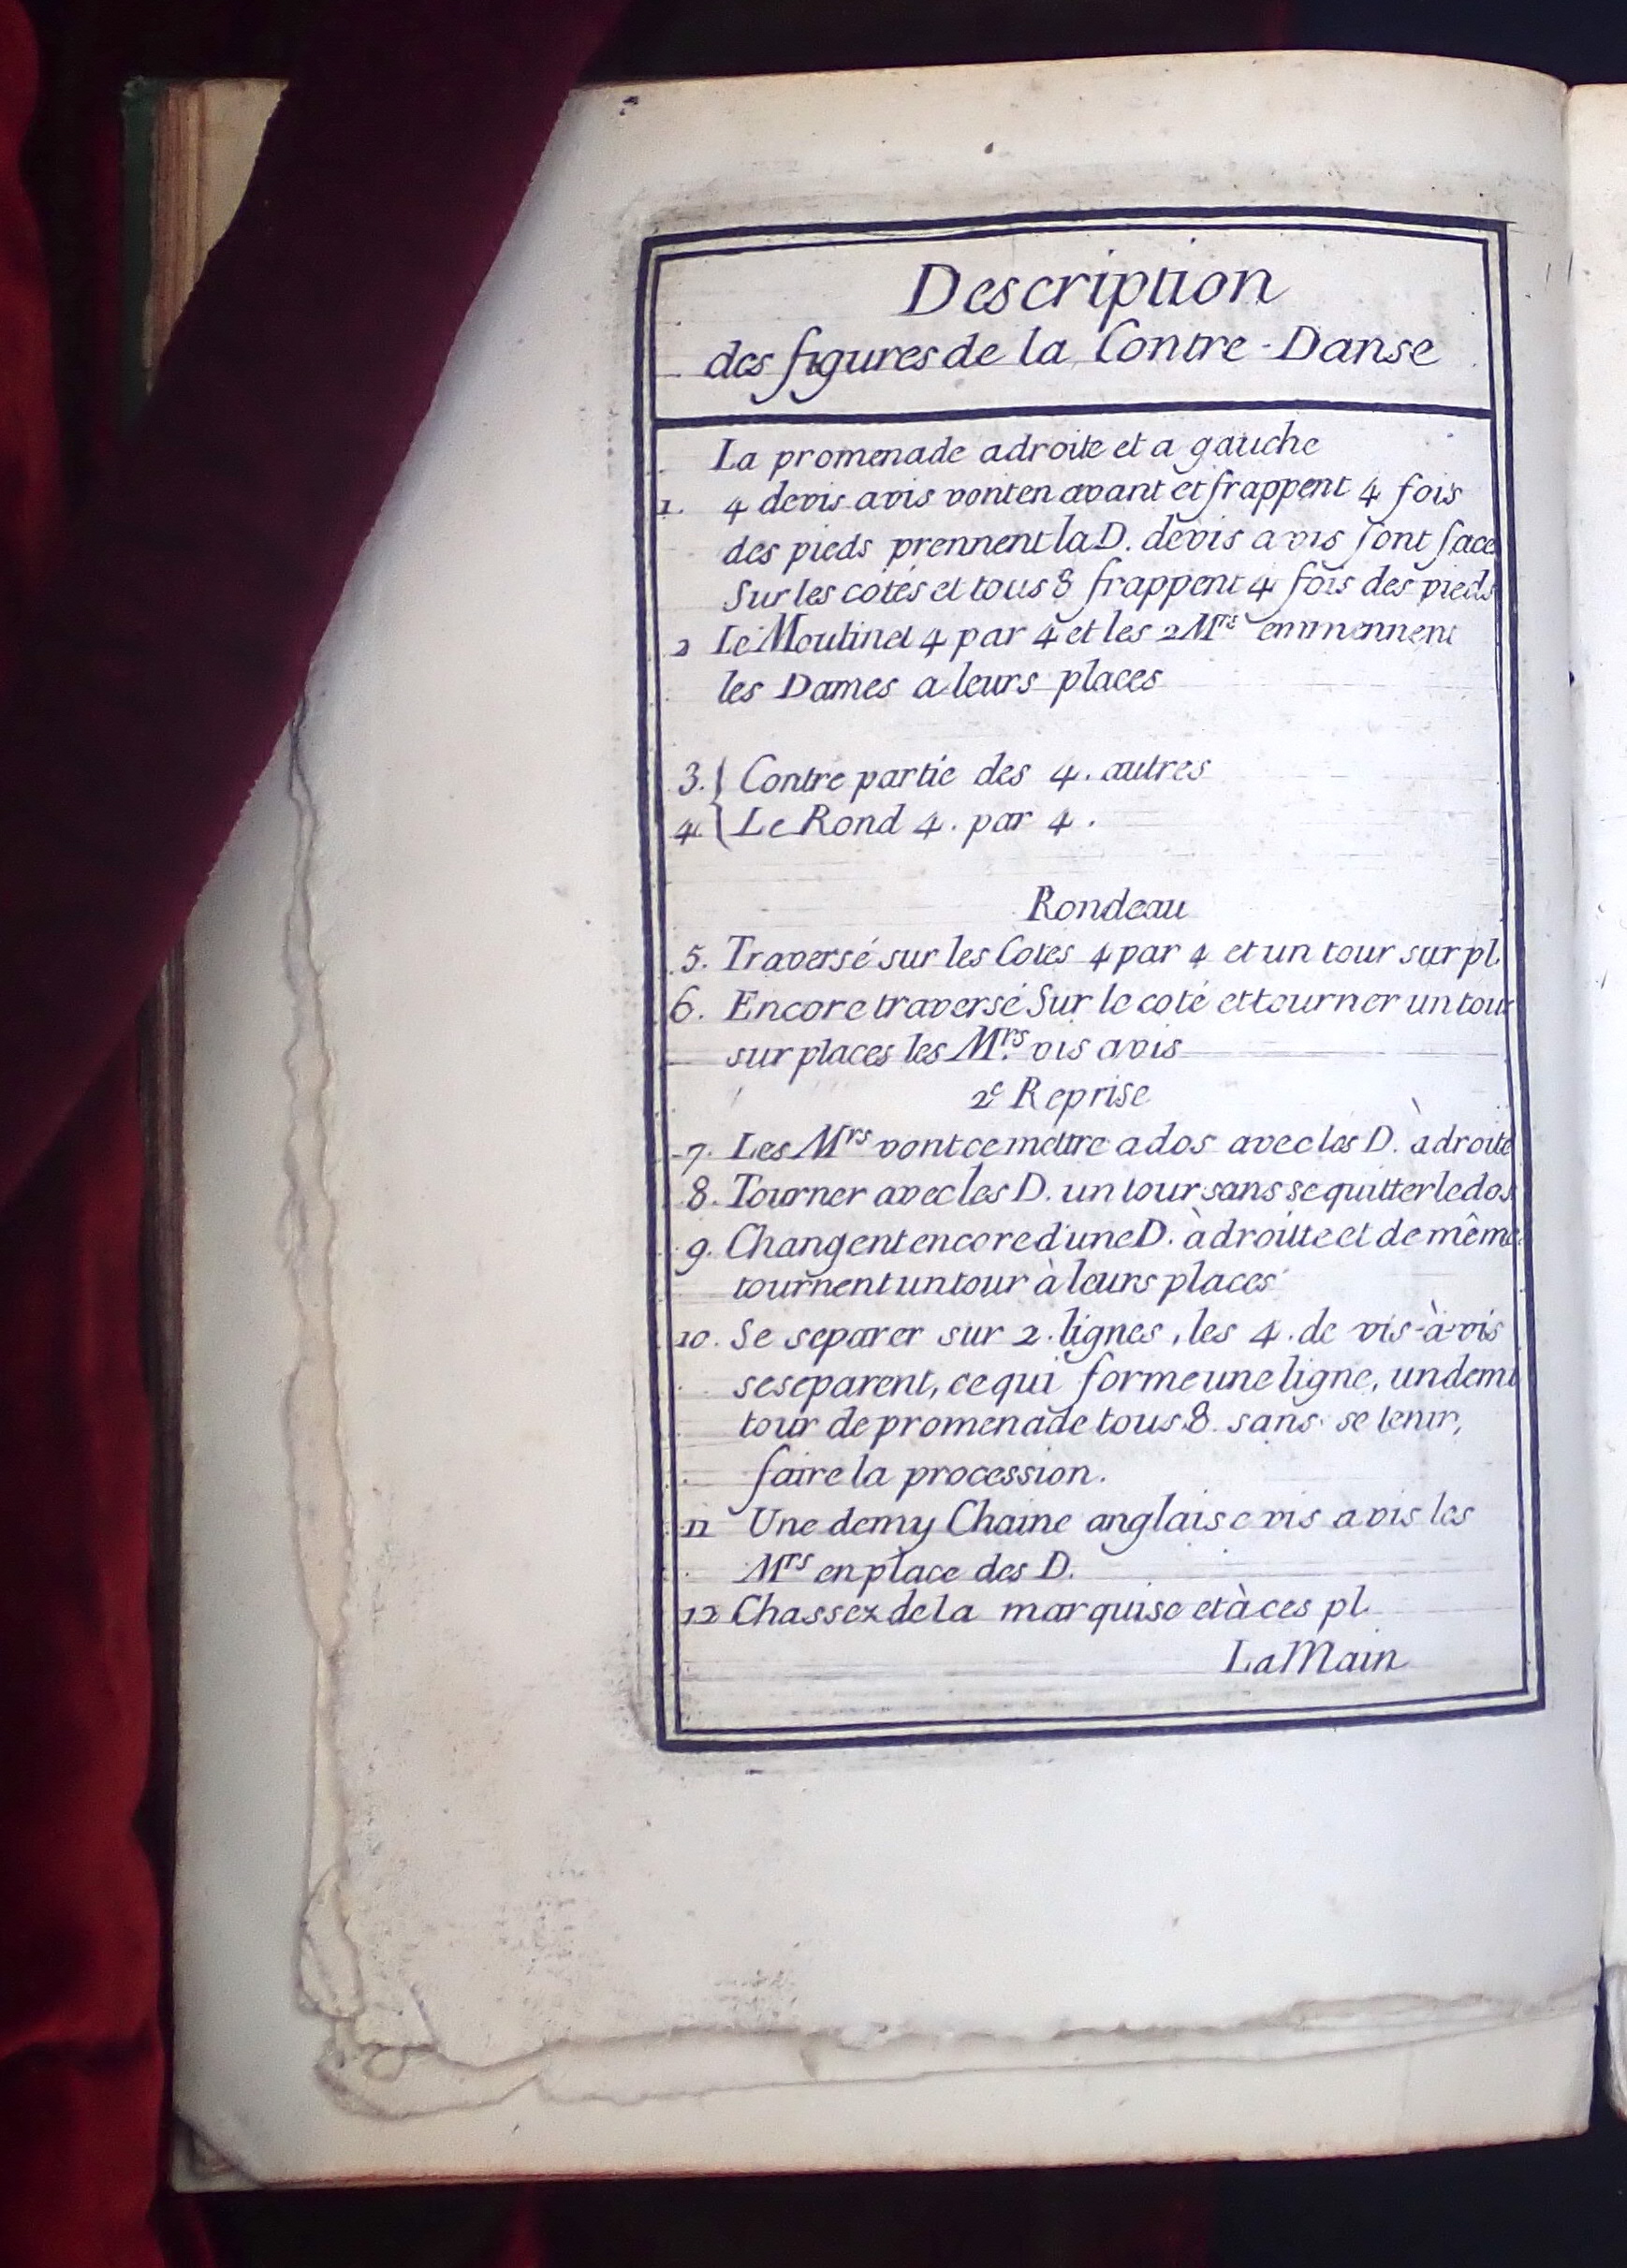 Description
des figures de la Contre-Danse
La promenade a droite et a gauche
1. 4 devis avis vont en avant et frappent 4 fois
des pieds prennent la D. devis a vis font face
Sur les cotés et tous 8 frappent 4 fois des pieds
2 Le Moulinet 4 par 4 et les 2 Mrs emmennent
les Dames a leurs places
3. { Contre partie des 4. autres
4. { Le Rond 4. par 4.
Rondeau
5. Traversé sur les Cotes 4 par 4 et un tour sur pl.
6. Encore traversé Sur le coté et tourner un tour
sur places les Mrs. vis avis
2e Reprise
7. Les Mrs vont ce mettre a dos avec les D. à droite
8. Tourner avec les D. un tour sans se quitter le dos
9. Changent encore d'une D. à droitte et de même
tournent un tour à leurs places
10. Se separer sur 2. lignes, les 4. de vis-à-vis
se separent, ce qui forme une ligne, un demi
tour de promenade tous 8. sans se tenir,
faire la procession.
11 Une demy Chaine anglaise vis a vis les
Mrs en place des D.
12 Chassez de la marquise et à ces pl.
La Main